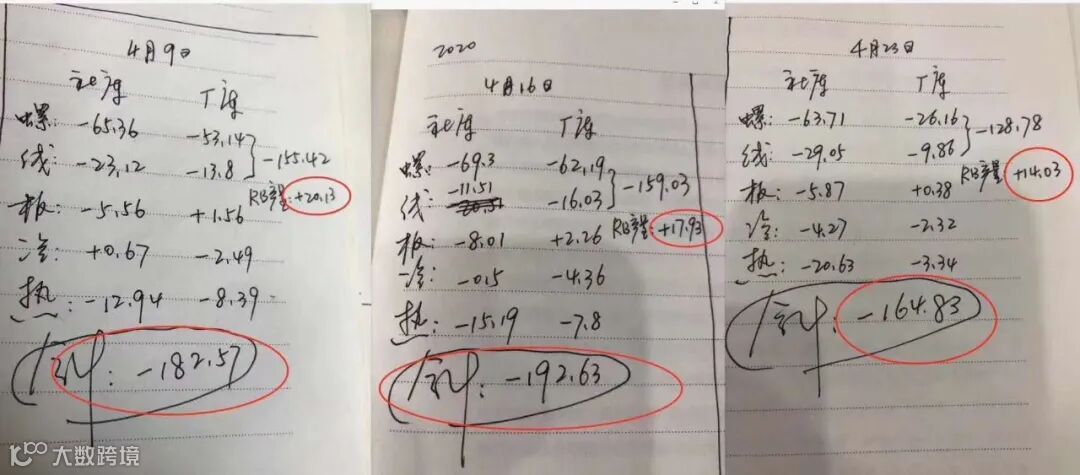 4月9日
社库 厂库
螺: -65.36 -53.14
线: -23.12 -13.8 } -155.42
RB产量: +20.13
板: -5.56 +1.56
冷: +0.67 -2.49
热: -12.94 -8.39
合计: -182.57
2020
4月16日
社库 厂库
螺: -69.3 -62.19
-11.51
线: -16.03 } -159.03
RB产量: +17.93
板: -8.01 +2.26
冷: -0.15 -4.36
热: -15.19 -7.8
合计: -192.63
4月23日
社库 厂库
螺: -63.71 -26.16
线: -29.05 -9.86 } -128.78
RB产量 +14.03
板: -5.87 +0.38
冷: -4.27 -2.32
热: -20.63 -3.34
合计: -164.83
大数跨境